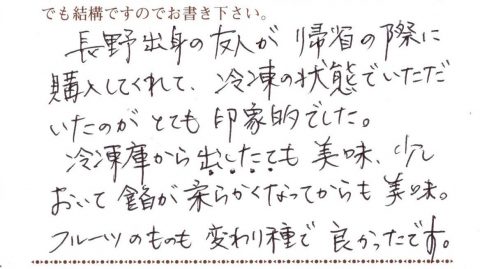 でも結構ですのでお書き下さい。
長野出身の友人が帰省の際に
購入してくれて、冷凍の状態でいただ
いたのがとても印象的でした。
冷凍庫から出したても美味、少し
おいて餡が柔らかくなってからも美味。
フルーツのものも変わり種で良かったです。